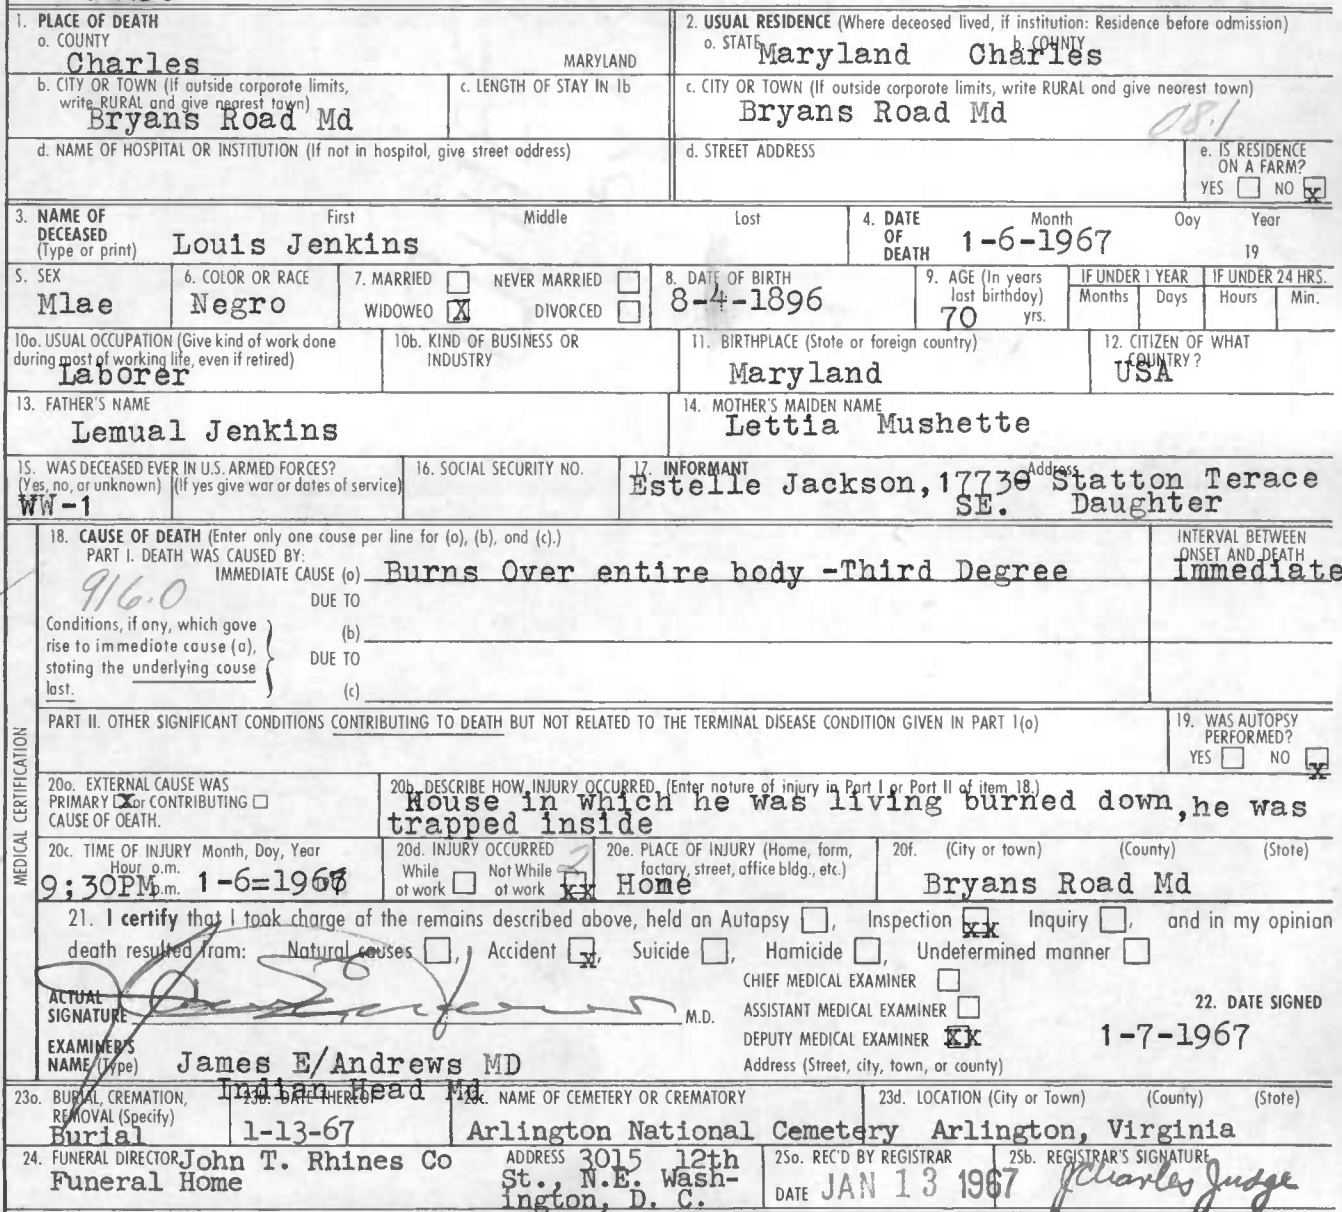 1. PLACE OF DEATH
a. COUNTY
Charles MARYLAND
2. USUAL RESIDENCE (Where deceased lived, if institution: Residence before admission)
a. STATE Maryland b. COUNTY Charles
b. CITY OR TOWN (If outside corporate limits,
write RURAL and give nearest town)
Bryans Road Md
c. LENGTH OF STAY IN 1b
c. CITY OR TOWN (If outside corporate limits, write RURAL and give nearest town)
Bryans Road Md 08.1
d. NAME OF HOSPITAL OR INSTITUTION (If not in hospital, give street address)
d. STREET ADDRESS
e. IS RESIDENCE
ON A FARM?
YES NO X
3. NAME OF
DECEASED
(Type or print)
First Middle Last
Louis Jenkins
4. DATE
OF
DEATH
Month Day Year
1-6-1967 19
5. SEX
Mlae
6. COLOR OR RACE
Negro
7. MARRIED NEVER MARRIED
WIDOWED X DIVORCED
8. DATE OF BIRTH
8-4-1896
9. AGE (In years
last birthday)
70 yrs.
IF UNDER 1 YEAR
Months Days
IF UNDER 24 HRS.
Hours Min.
10a. USUAL OCCUPATION (Give kind of work done
during most of working life, even if retired)
Laborer
10b. KIND OF BUSINESS OR
INDUSTRY
11. BIRTHPLACE (State or foreign country)
Maryland
12. CITIZEN OF WHAT
COUNTRY?
USA
13. FATHER'S NAME
Lemual Jenkins
14. MOTHER'S MAIDEN NAME
Lettia Mushette
15. WAS DECEASED EVER IN U.S. ARMED FORCES?
(Yes, no, or unknown) (If yes give war or dates of service)
WW-1
16. SOCIAL SECURITY NO.
17. INFORMANT Address
Estelle Jackson, Statton Terace
SE. Daughter
18. CAUSE OF DEATH (Enter only one cause per line for (a), (b), and (c).)
PART I. DEATH WAS CAUSED BY:
IMMEDIATE CAUSE (a) Burns Over entire body -Third Degree
INTERVAL BETWEEN
ONSET AND DEATH
Immediate
916.0
DUE TO
Conditions, if any, which gave
rise to immediate cause (a),
stating the underlying cause
last.
(b)
DUE TO
(c)
PART II. OTHER SIGNIFICANT CONDITIONS CONTRIBUTING TO DEATH BUT NOT RELATED TO THE TERMINAL DISEASE CONDITION GIVEN IN PART I(a)
19. WAS AUTOPSY
PERFORMED?
YES NO X
MEDICAL CERTIFICATION
20a. EXTERNAL CAUSE WAS
PRIMARY X or CONTRIBUTING
CAUSE OF DEATH.
20b. DESCRIBE HOW INJURY OCCURRED. (Enter nature of injury in Part I or Part II of item 18.)
House in which he was living burned down, he was
trapped inside
20c. TIME OF INJURY Month, Day, Year
Hour a.m.
p.m.
9;30PM 1-6=1967
20d. INJURY OCCURRED
While Not While 2
at work at work XX
20e. PLACE OF INJURY (Home, farm,
factory, street, office bldg., etc.)
Home
20f. (City or town) (County) (State)
Bryans Road Md
21. I certify that I took charge of the remains described above, held an Autopsy , Inspection XX Inquiry , and in my opinion
death resulted from: Natural causes , Accident X, Suicide , Homicide , Undetermined manner
ACTUAL
SIGNATURE M.D.
CHIEF MEDICAL EXAMINER
ASSISTANT MEDICAL EXAMINER
DEPUTY MEDICAL EXAMINER XX
22. DATE SIGNED
1-7-1967
EXAMINER'S
NAME (Type) James E/Andrews MD
Indian Head Md
Address (Street, city, town, or county)
23a. BURIAL, CREMATION,
REMOVAL (Specify)
Burial
23b. DATE THEREOF
1-13-67
23c. NAME OF CEMETERY OR CREMATORY
Arlington National Cemetery
23d. LOCATION (City or Town) (County) (State)
Arlington, Virginia
24. FUNERAL DIRECTOR John T. Rhines Co
Funeral Home
ADDRESS 3015 12th
St., N.E. Wash-
ington, D. C.
25a. REC'D BY REGISTRAR
DATE JAN 13 1967
25b. REGISTRAR'S SIGNATURE
J Charles Judge